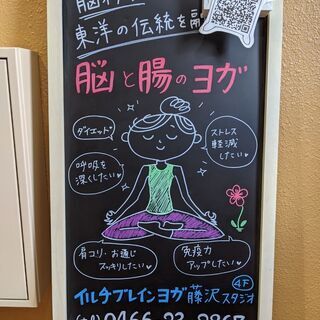 東洋の伝統を
脳と腸のヨガ
ダイエット
ストレス
軽減
したい
呼吸を
深くしたい
肩コリ・お通じ
スッキリしたい
免疫力
アップしたい
イルチブレインヨガ 藤沢スタジオ
4F
0466